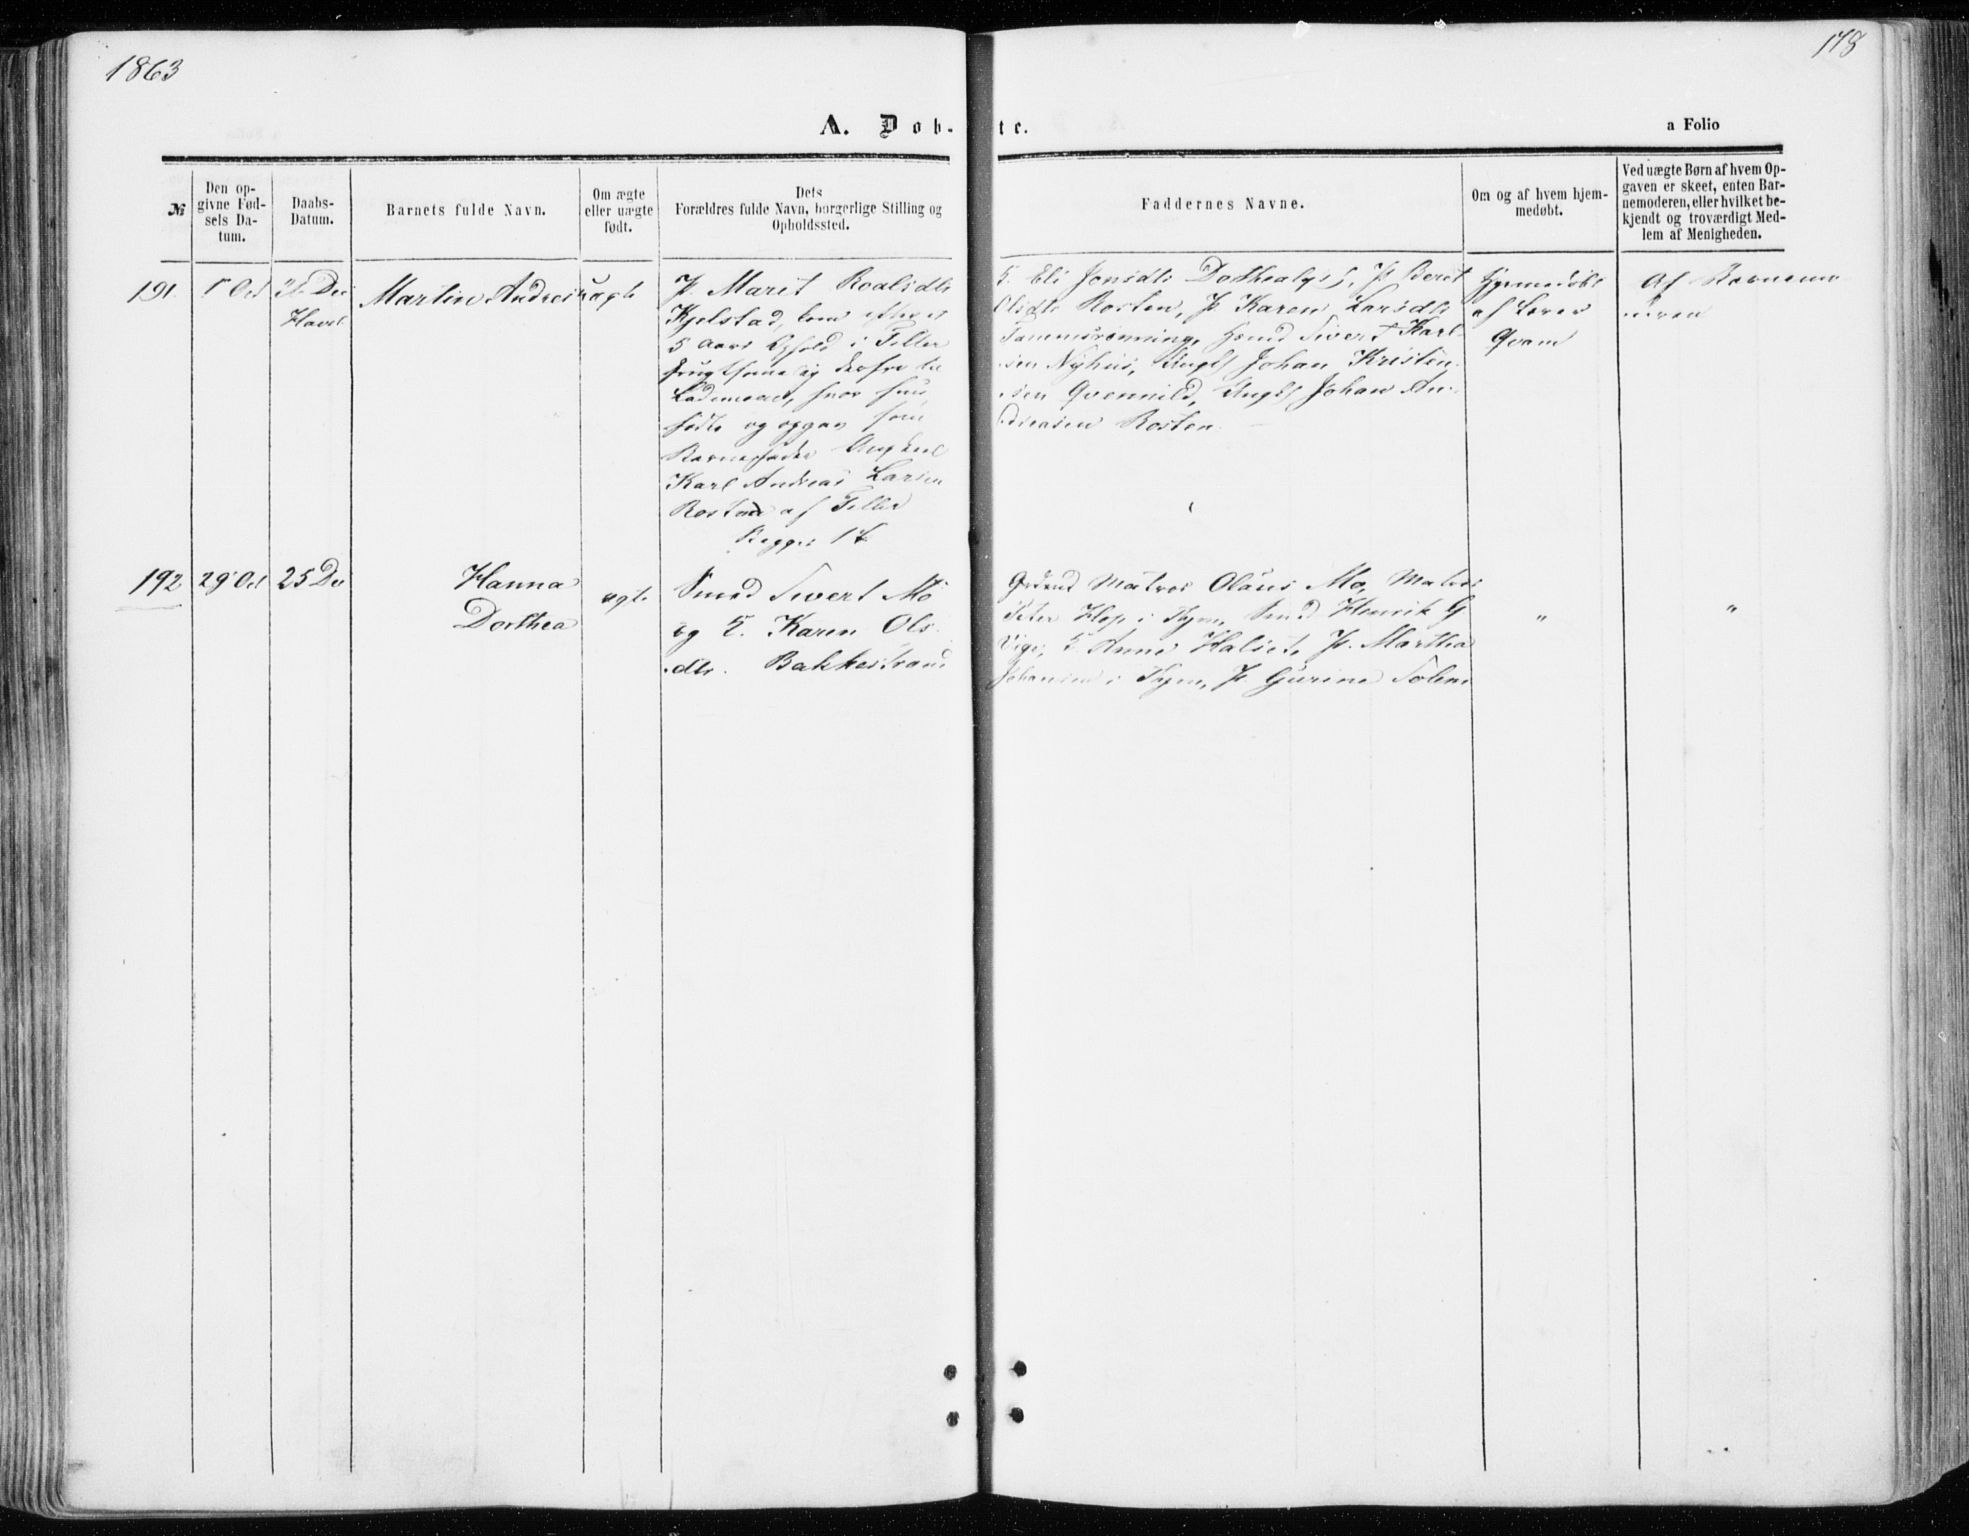 1863
178
A. Døb-
te.
a Folio
№
Den op-
givne Fød-
sels Da-
tum.
Daabs-
Datum.
Barnets fulde Navn.
Om ægte
eller uægte
født.
Dets
Forældres fulde Navn, borgerlige Stilling og
Opholdssted.
Faddernes Navne.
Om og af hvem hjem-
medøbt.
Ved uægte Børn af hvem Op-
gaven er skeet, enten Bar-
nemoderen, eller hvilket be-
kjendt og troværdigt Med-
lem af Menigheden.
191
Martin Andreas
uægte
P. Maret Roaldsdtr
Kjelstad, som efter et
5 Aars Ophold i Tiller
hvor hun
fødte og opgav som
Barnefader Ungkarl
Karl Andreas Larsen
Rosten af Tiller
Begges 1t
Eli Jonsdtr P. Berit
Olsdtr Rosten, P. Karen Larsdtr
Sivert Karl-
sen Nyhus, Ungk Johan Kristen-
sen Qvenild, Ungk Johan An-
dreasen Rosten
Hjemmedøbt
af Lærer
Qvam
Af Barnemo
deren
192
29 Oct
25 De
Hanna
Dorthea
ægte
Smed Sivert Mo
og K. Karen Ols-
dtr. Bakkestrand
Matros Olaus Mo, Matros
Peter Hop i Byen, Smed Henrik G
Vige, K. Anne Halset, P. Marthea
Johansen i Byen, P. Gurine Solem
"
"